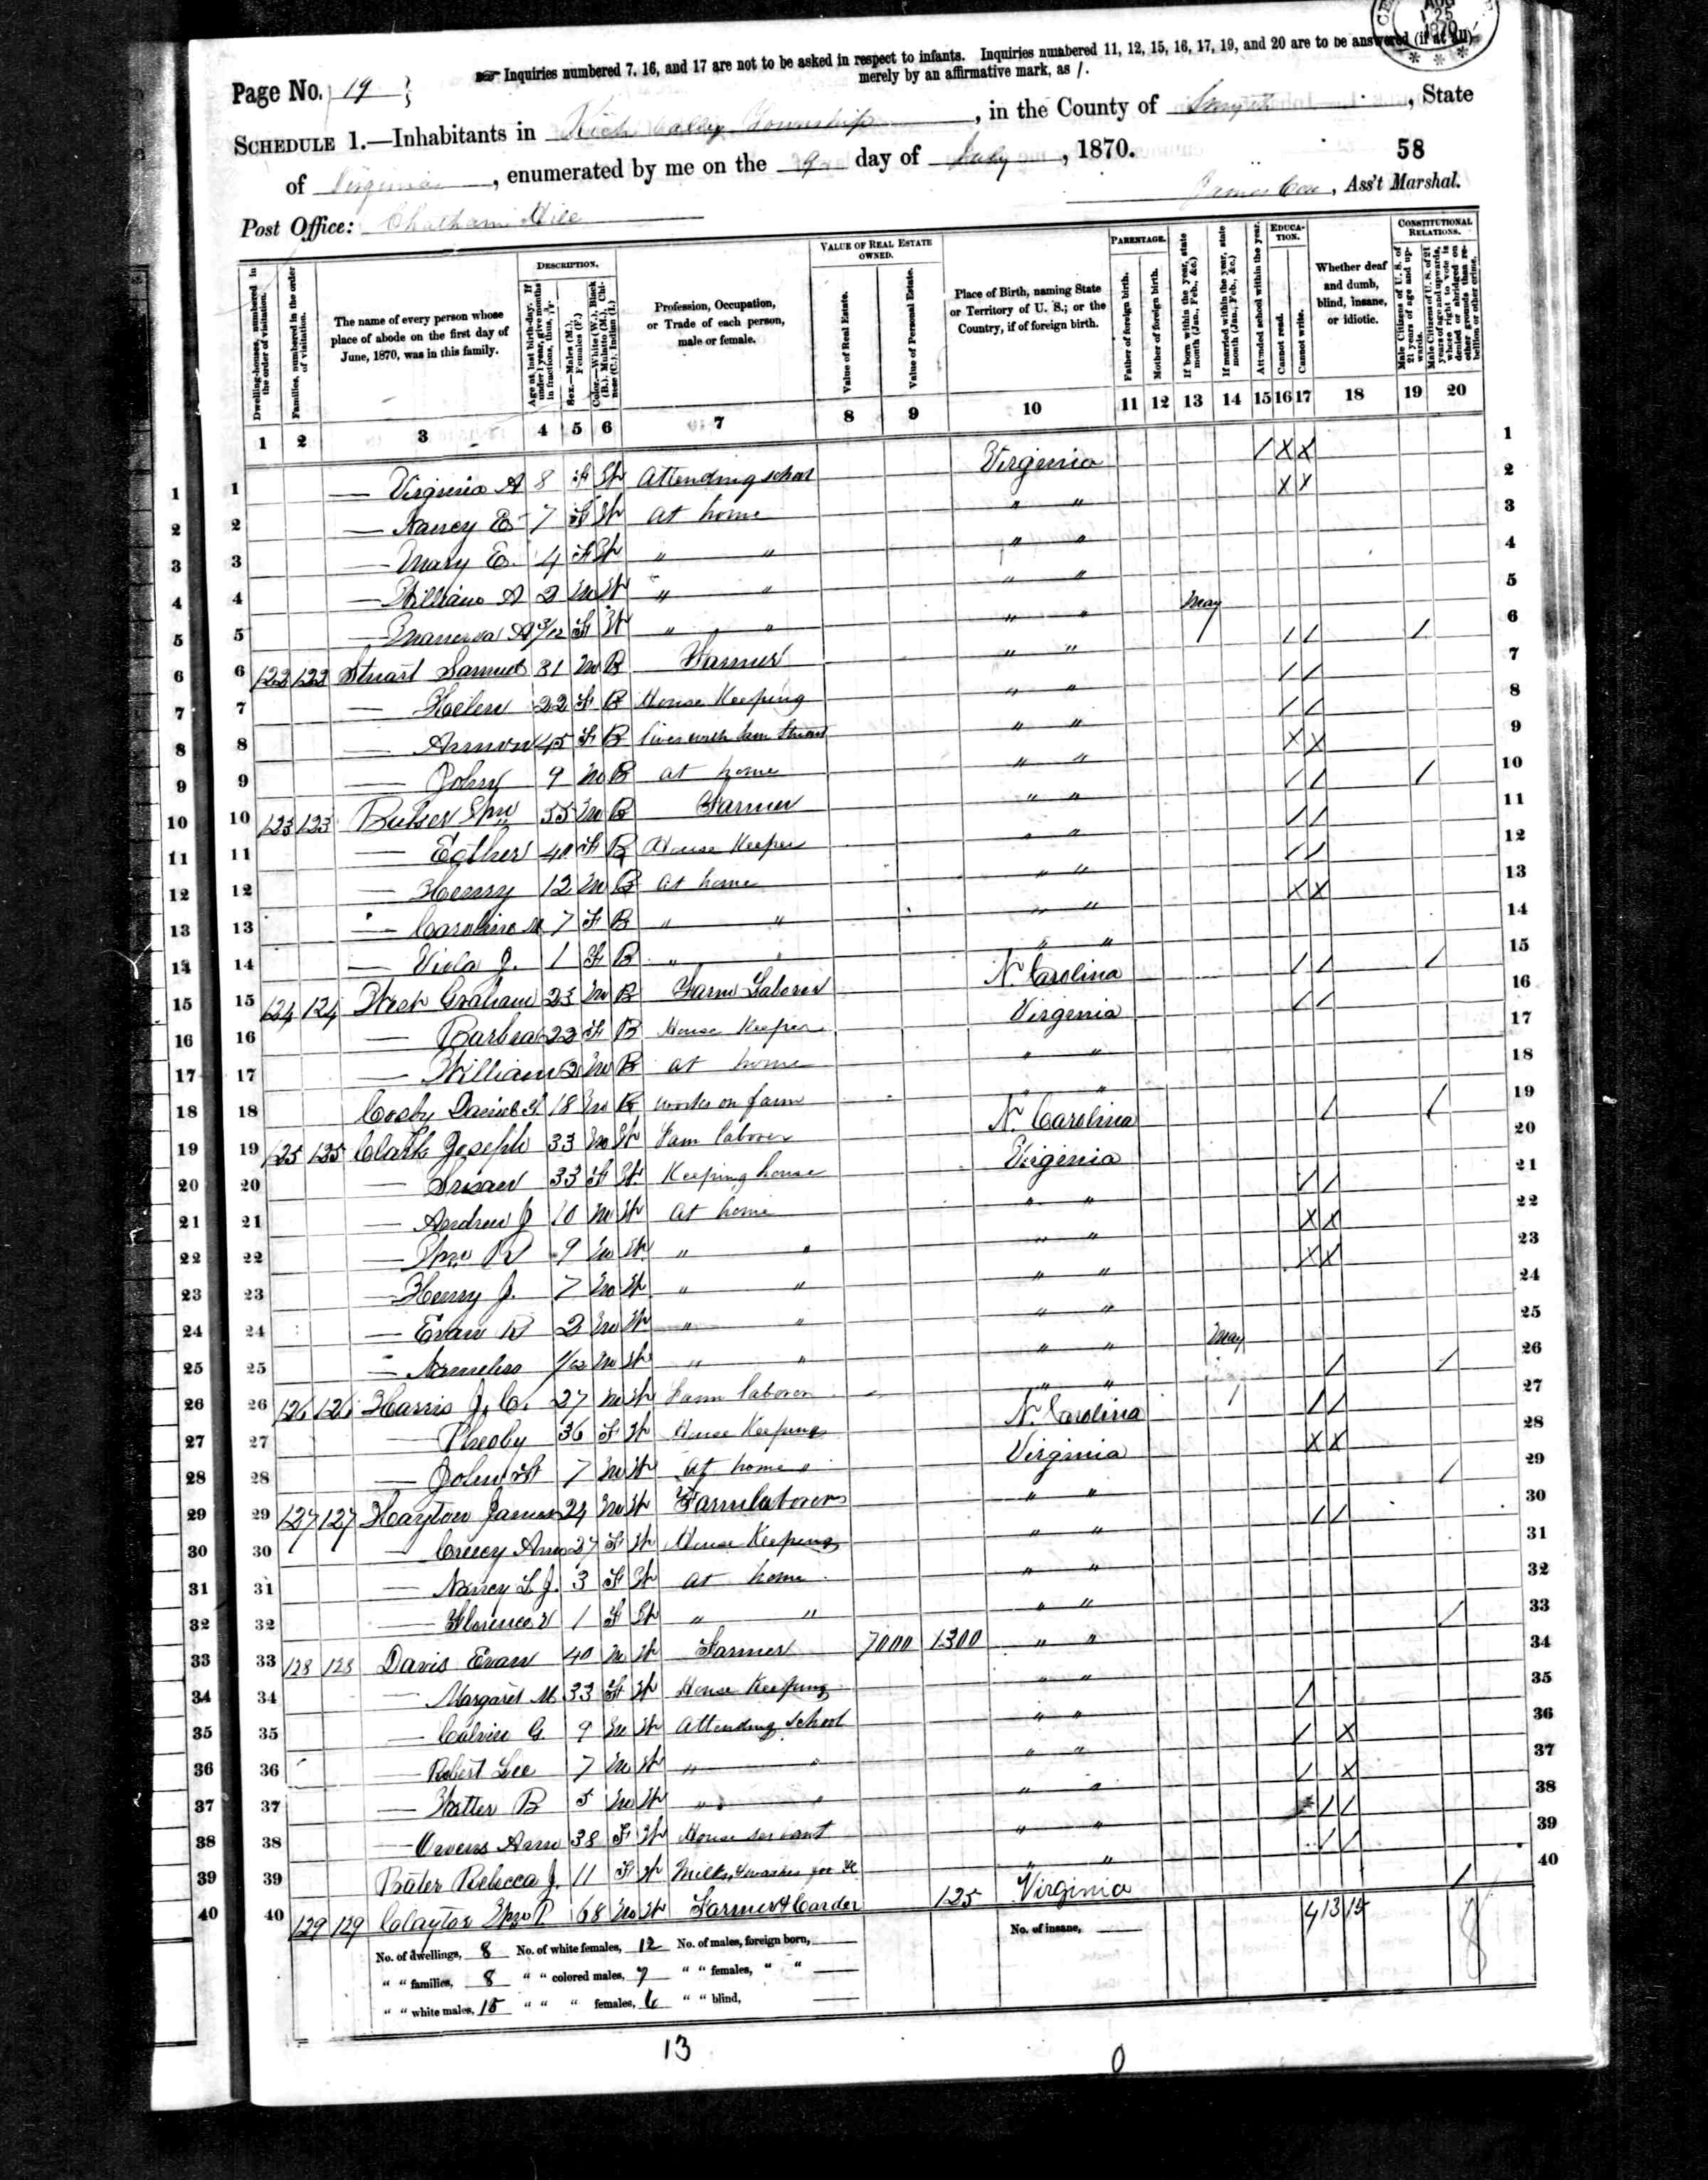 AUG 25 1870
Inquiries numbered 7, 16, and 17 are not to be asked in respect to infants. Inquiries numbered 11, 12, 15, 16, 17, 19, and 20 are to be answered (if at all)
merely by an affirmative mark, as /.
Page No. 19
SCHEDULE 1.—Inhabitants in Rich Valley Township, in the County of Smyth, State
of Virginia, enumerated by me on the 9 day of July, 1870.
58
Post Office: Chatham Hill
James Cox, Ass't Marshal.
Dwelling-houses, numbered in the order of visitation.
Families, numbered in the order of visitation.
The name of every person whose place of abode on the first day of June, 1870, was in this family.
DESCRIPTION.
Age at last birth-day. If under 1 year, give months in fractions, thus, 3/12.
Sex.—Males (M.), Females (F.)
Color.—White (W.), Black (B.), Mulatto (M.), Chinese (C.), Indian (I.)
Profession, Occupation, or Trade of each person, male or female.
VALUE OF REAL ESTATE OWNED.
Value of Real Estate.
Value of Personal Estate.
Place of Birth, naming State or Territory of U. S.; or the Country, if of foreign birth.
PARENTAGE.
Father of foreign birth.
Mother of foreign birth.
If born within the year, state month (Jan., Feb., &c.)
If married within the year, state month (Jan., Feb., &c.)
Attended school within the year.
EDUCATION.
Cannot read.
Cannot write.
Whether deaf and dumb, blind, insane, or idiotic.
CONSTITUTIONAL RELATIONS.
Male Citizens of U. S. of 21 years of age and upwards.
Male Citizens of U. S. of 21 years of age and upwards, whose right to vote is denied or abridged on other grounds than rebellion or other crime.
1 2 3 4 5 6 7 8 9 10 11 12 13 14 15 16 17 18 19 20
1 — Virginia A 8 F W Attending school Virginia / X X
2 — Nancy E 7 F W At home " " X X
3 — Mary E. 4 F W " " " "
4 — William A 2 M W " " " "
5 — A 3/12 F W " " " " May
6 122 122 Stuart Samuel 31 M B Farmer " " / / /
7 — Helen 22 F B House Keeping " " / /
8 — 45 F B lives with Sam Stuart " " / /
9 — John 9 M B at home " " X X
10 123 123 Wm 55 M B Farmer " " / / /
11 — Esther 40 F B House Keeper " " / /
12 — Henry 12 M B at home " " / /
13 — Caroline M 7 F B " " " " X X
14 — Viola J. 1 F B " " " "
15 124 124 West Graham 23 M B Farm Laborer N. Carolina / / /
16 — Barbra 22 F B House Keeper Virginia / /
17 — William 2 M B at home " "
18 Cosby Daniel 18 M B works on farm " "
19 125 125 Clark Joseph 33 M W Farm laborer N. Carolina / /
20 — Susan 33 F W Keeping house Virginia
21 — Andrew J 10 M W At home " " / /
22 — Wm R 9 M W " " " " X X
23 — Henry J. 7 M W " " " " X X
24 — Evan R 2 M W " " " "
25 — Nameless 1/12 M W " " " " May
26 126 126 Harris J. C. 27 M W Farm laborer " " / /
27 — Pheoby 36 F W House Keeping N. Carolina / /
28 — John H 7 M W At home Virginia X X
29 127 127 Hayton James 24 M W Farm laborer " " /
30 — Ann 27 F W House Keeping " " / /
31 — Nancy L J. 3 F W At home " "
32 — Florence V 1 F W " " " "
33 128 128 Davis Evan 40 M W Farmer 7000 1300 " " /
34 — Margaret M 33 F W House Keeping " "
35 — Calvin G. 9 M W Attending School " " /
36 — Robert Lee 7 M W " " " " / X
37 — Walter B 5 M W " " " " / X
38 — Owens Ann 38 F W House servant " " / /
39 Rebecca J. 11 F W Milks, & washes " " / /
40 129 129 Claytor Wm P 68 M W Farmer & Carder 125 Virginia /
No. of dwellings, 8 No. of white females, 12 No. of males, foreign born, — No. of insane, — 4 13 15
" " families, 8 " " colored males, 7 " " females, " " —
" " white males, 15 " " " females, 6 " " blind, —
13
0